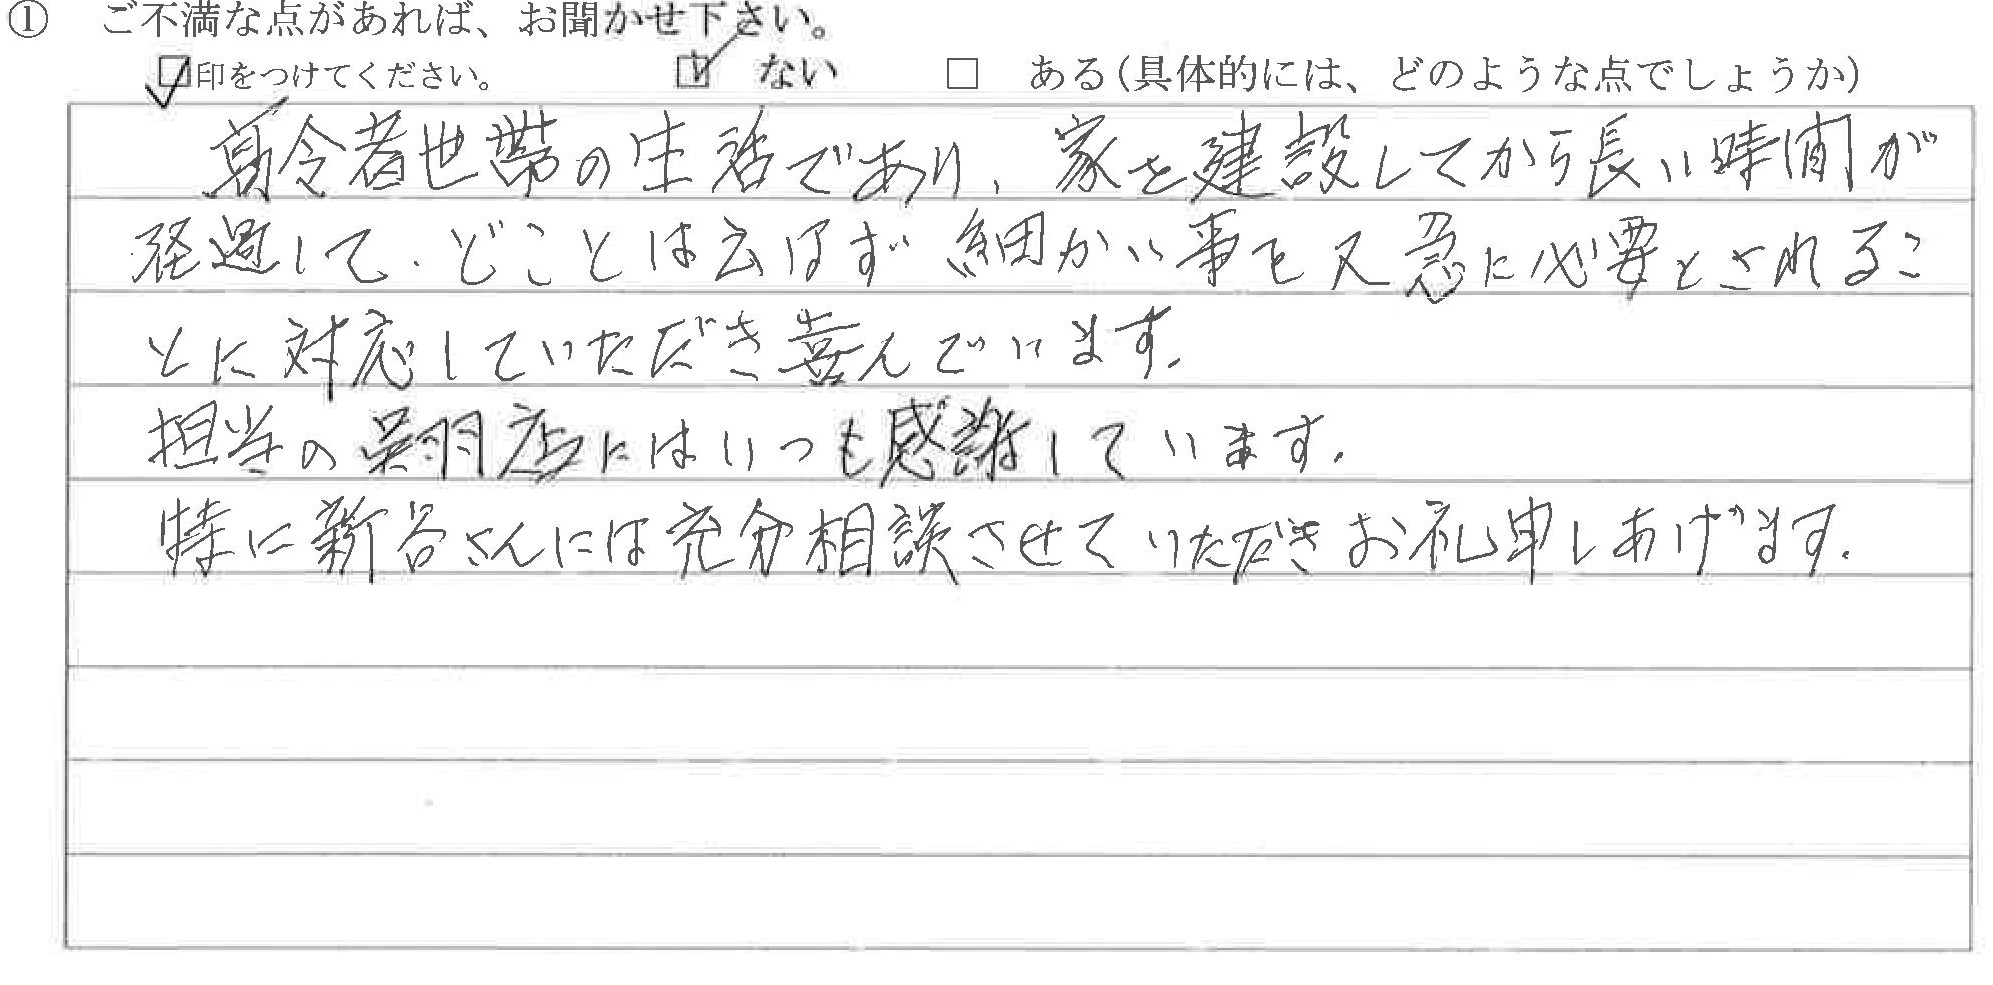 ① ご不満な点があれば、お聞かせ下さい。
☑印をつけてください。 ☑ ない □ ある(具体的には、どのような点でしょうか)
高令者世帯の生活であり、家を建設してから長い時間が
経過して、どことは云はず細かい事を又急に必要とされるこ
とに対応していただき喜んでいます。
担当の呉羽店にはいつも感謝しています。
特に新谷さんには充分相談させていただきお礼申しあげます。